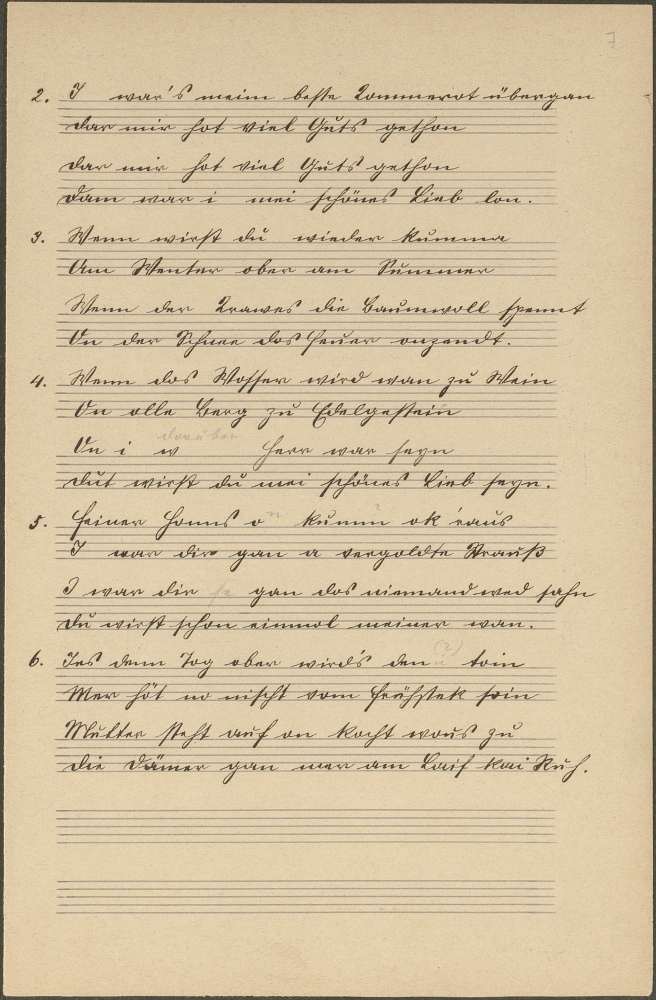 7
2. I war's meim beste Kommerot übergan
Dar mir hot viel Guts gethon
Dar mir hot viel Guts gethon
Dam war i mei schönes Lieb lon.
3. Wenn wirst du wieder kumma
Am Wenter ober am Summer
Wenn der Krawes die Baumwoll spennt
On der Schnee dos Feuer onzendt.
4. Wenn dos Wosser wird wan zu Wein
On olle Berg zu Edelgestein
darüber
On i w Herr war seyn
Dut wirst du mei schönes Lieb seyn.
5. Feiner Honns o kumm ok 'raus
I war dir gan a vergoldte Strauß
I war dir gan dos niemand wed sahn
Du wirst schon einmol meiner wan.
6. Ies denn Tog ober wird's den (?) toin
Mer höt no nischt vom Frühstek soin
Mutter steht auf on kocht wous zu
Die Dämer gan mer am Laif kai Ruh.